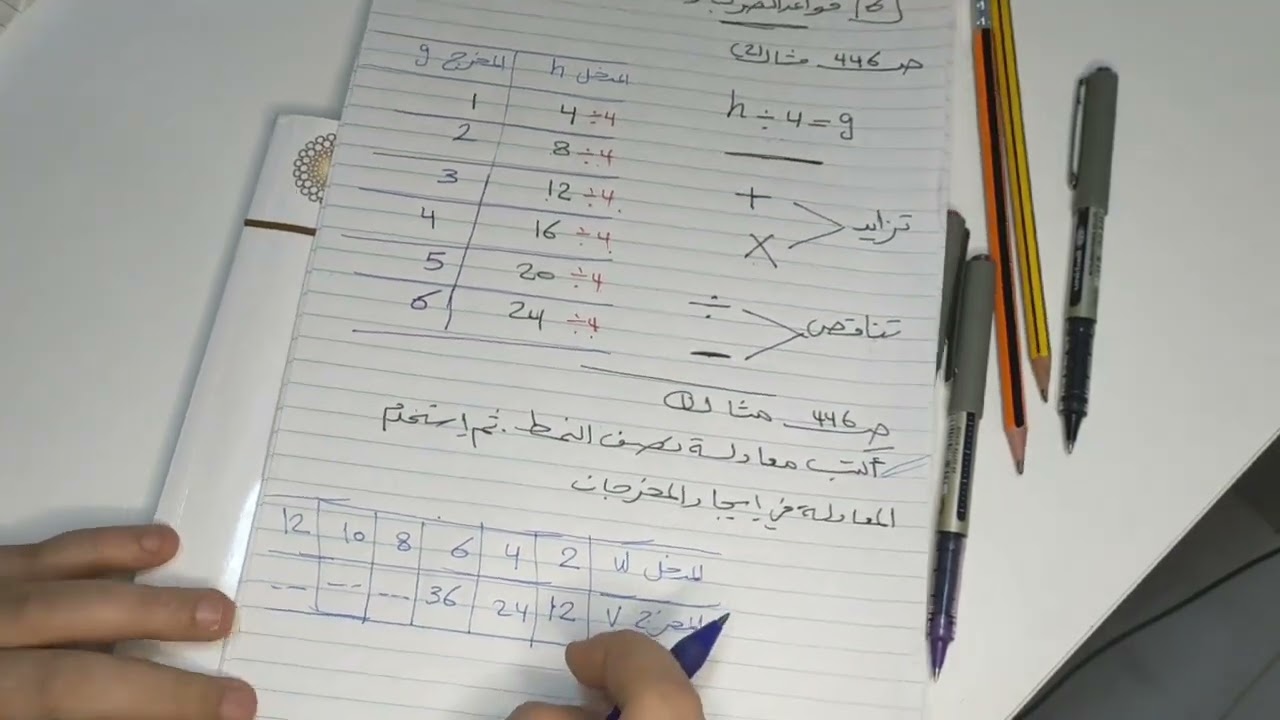 ص 446 مثال (2)
h ÷ 4 = g
+
×
تزايد
÷
−
تناقص
المدخل h المخرج g
4 ÷4 1
8 ÷4 2
12 ÷4 3
16 ÷4 4
20 ÷4 5
24 ÷4 6
ص 446 مثال (1)
أكتب معادلة تصف النمط. ثم استخدم
المعادلة في إيجاد المخرجات
المدخل u 2 4 6 8 10 12
المخرج v 12 24 36 --- --- ---